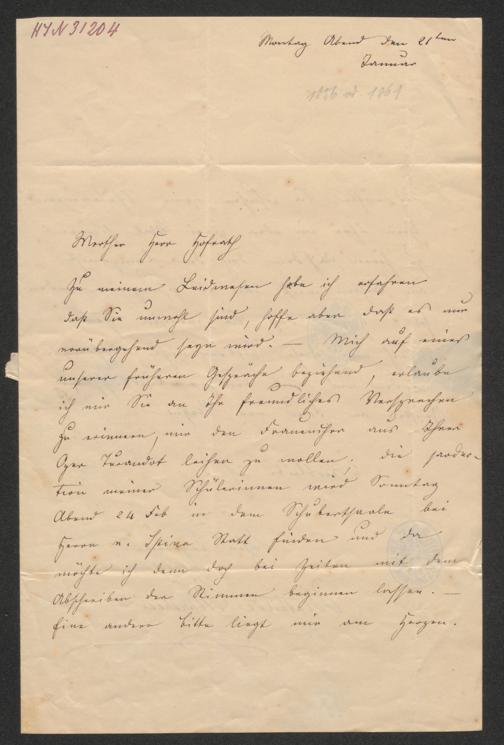 HIN 31204
Montag Abend den 21ten
Januar
1856 od. 1861
Werther Herr Hofrath
Zu meinem Leidwesen habe ich erfahren
daß Sie unwohl sind, hoffe aber daß es nur
vorübergehend seyn wird. — Mich auf eines
unserer früheren Gespräche beziehend, erlaube
ich mir Sie an Ihr freundliches Versprechen
zu erinnern, mir den Frauenchor aus Ihrer
Oper Turandot leihen zu wollen; die
tion meiner Schülerinnen wird Sonntag
Abend 24 Feb in dem Schubertsaale bei
Herrn v. Statt finden und da
möchte ich denn doch bei Zeiten mit dem
Abschreiben der Stimmen beginnen lassen. —
Eine andere Bitte liegt mir am Herzen.